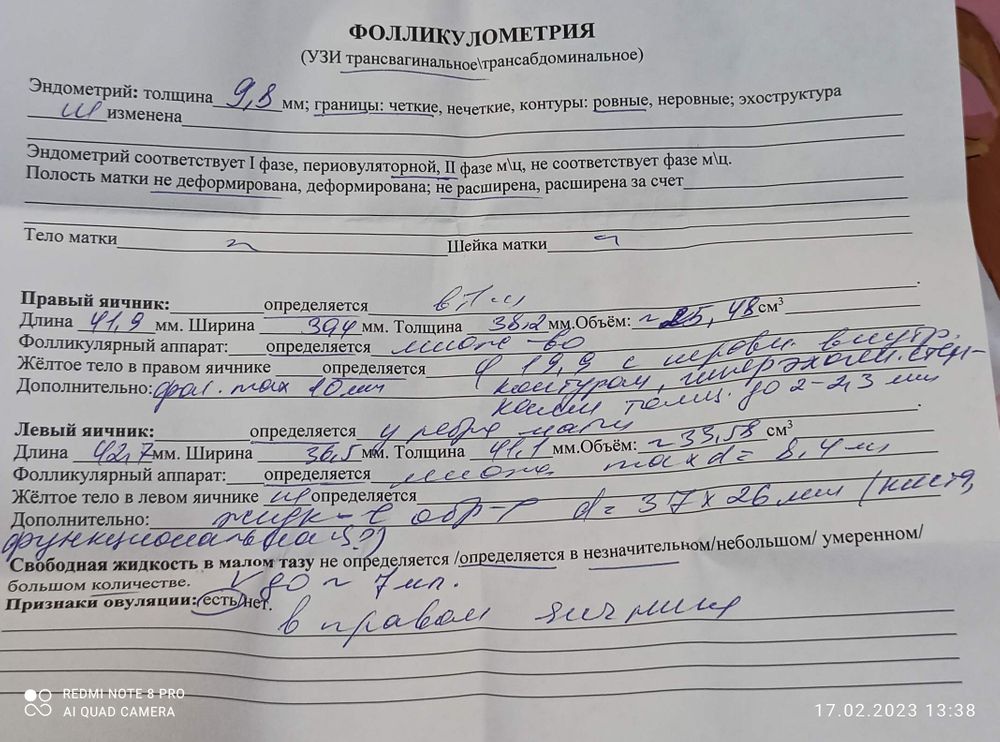 ФОЛЛИКУЛОМЕТРИЯ
(УЗИ трансвагинальное\трансабдоминальное)
Эндометрий: толщина 9,8 мм; границы: четкие, нечеткие, контуры: ровные, неровные; эхоструктура
изменена
Эндометрий соответствует I фазе, периовуляторной, II фазе м\ц, не соответствует фазе м\ц.
Полость матки не деформирована, деформирована; не расширена, расширена за счет
Тело матки Шейка матки
Правый яичник: определяется
Длина 41,9 мм. Ширина мм. Толщина 38,2 мм.Объём: см³
Фолликулярный аппарат: определяется множ-во
Жёлтое тело в правом яичнике определяется 19,9 с неровн. внутр.
Дополнительно: фол. max 10 мм контуром, гиперэхоген. стен-
ками толщ. до 2-2,3 мм
Левый яичник: определяется у ребра матки
Длина 42,7 мм. Ширина 36,5 мм. Толщина 41,1 мм.Объём: ~33,58 см³
Фолликулярный аппарат: определяется множ. max d= 8,4 мм
Жёлтое тело в левом яичнике определяется
Дополнительно: жидк-е обр-е d= 37х26мм (киста,
функциональная ?)
Свободная жидкость в малом тазу не определяется /определяется в незначительном/небольшом/ умеренном/
большом количестве. V до ~ 7 мл.
Признаки овуляции: есть/нет.
в правом яичнике
REDMI NOTE 8 PRO
AI QUAD CAMERA
17.02.2023 13:38